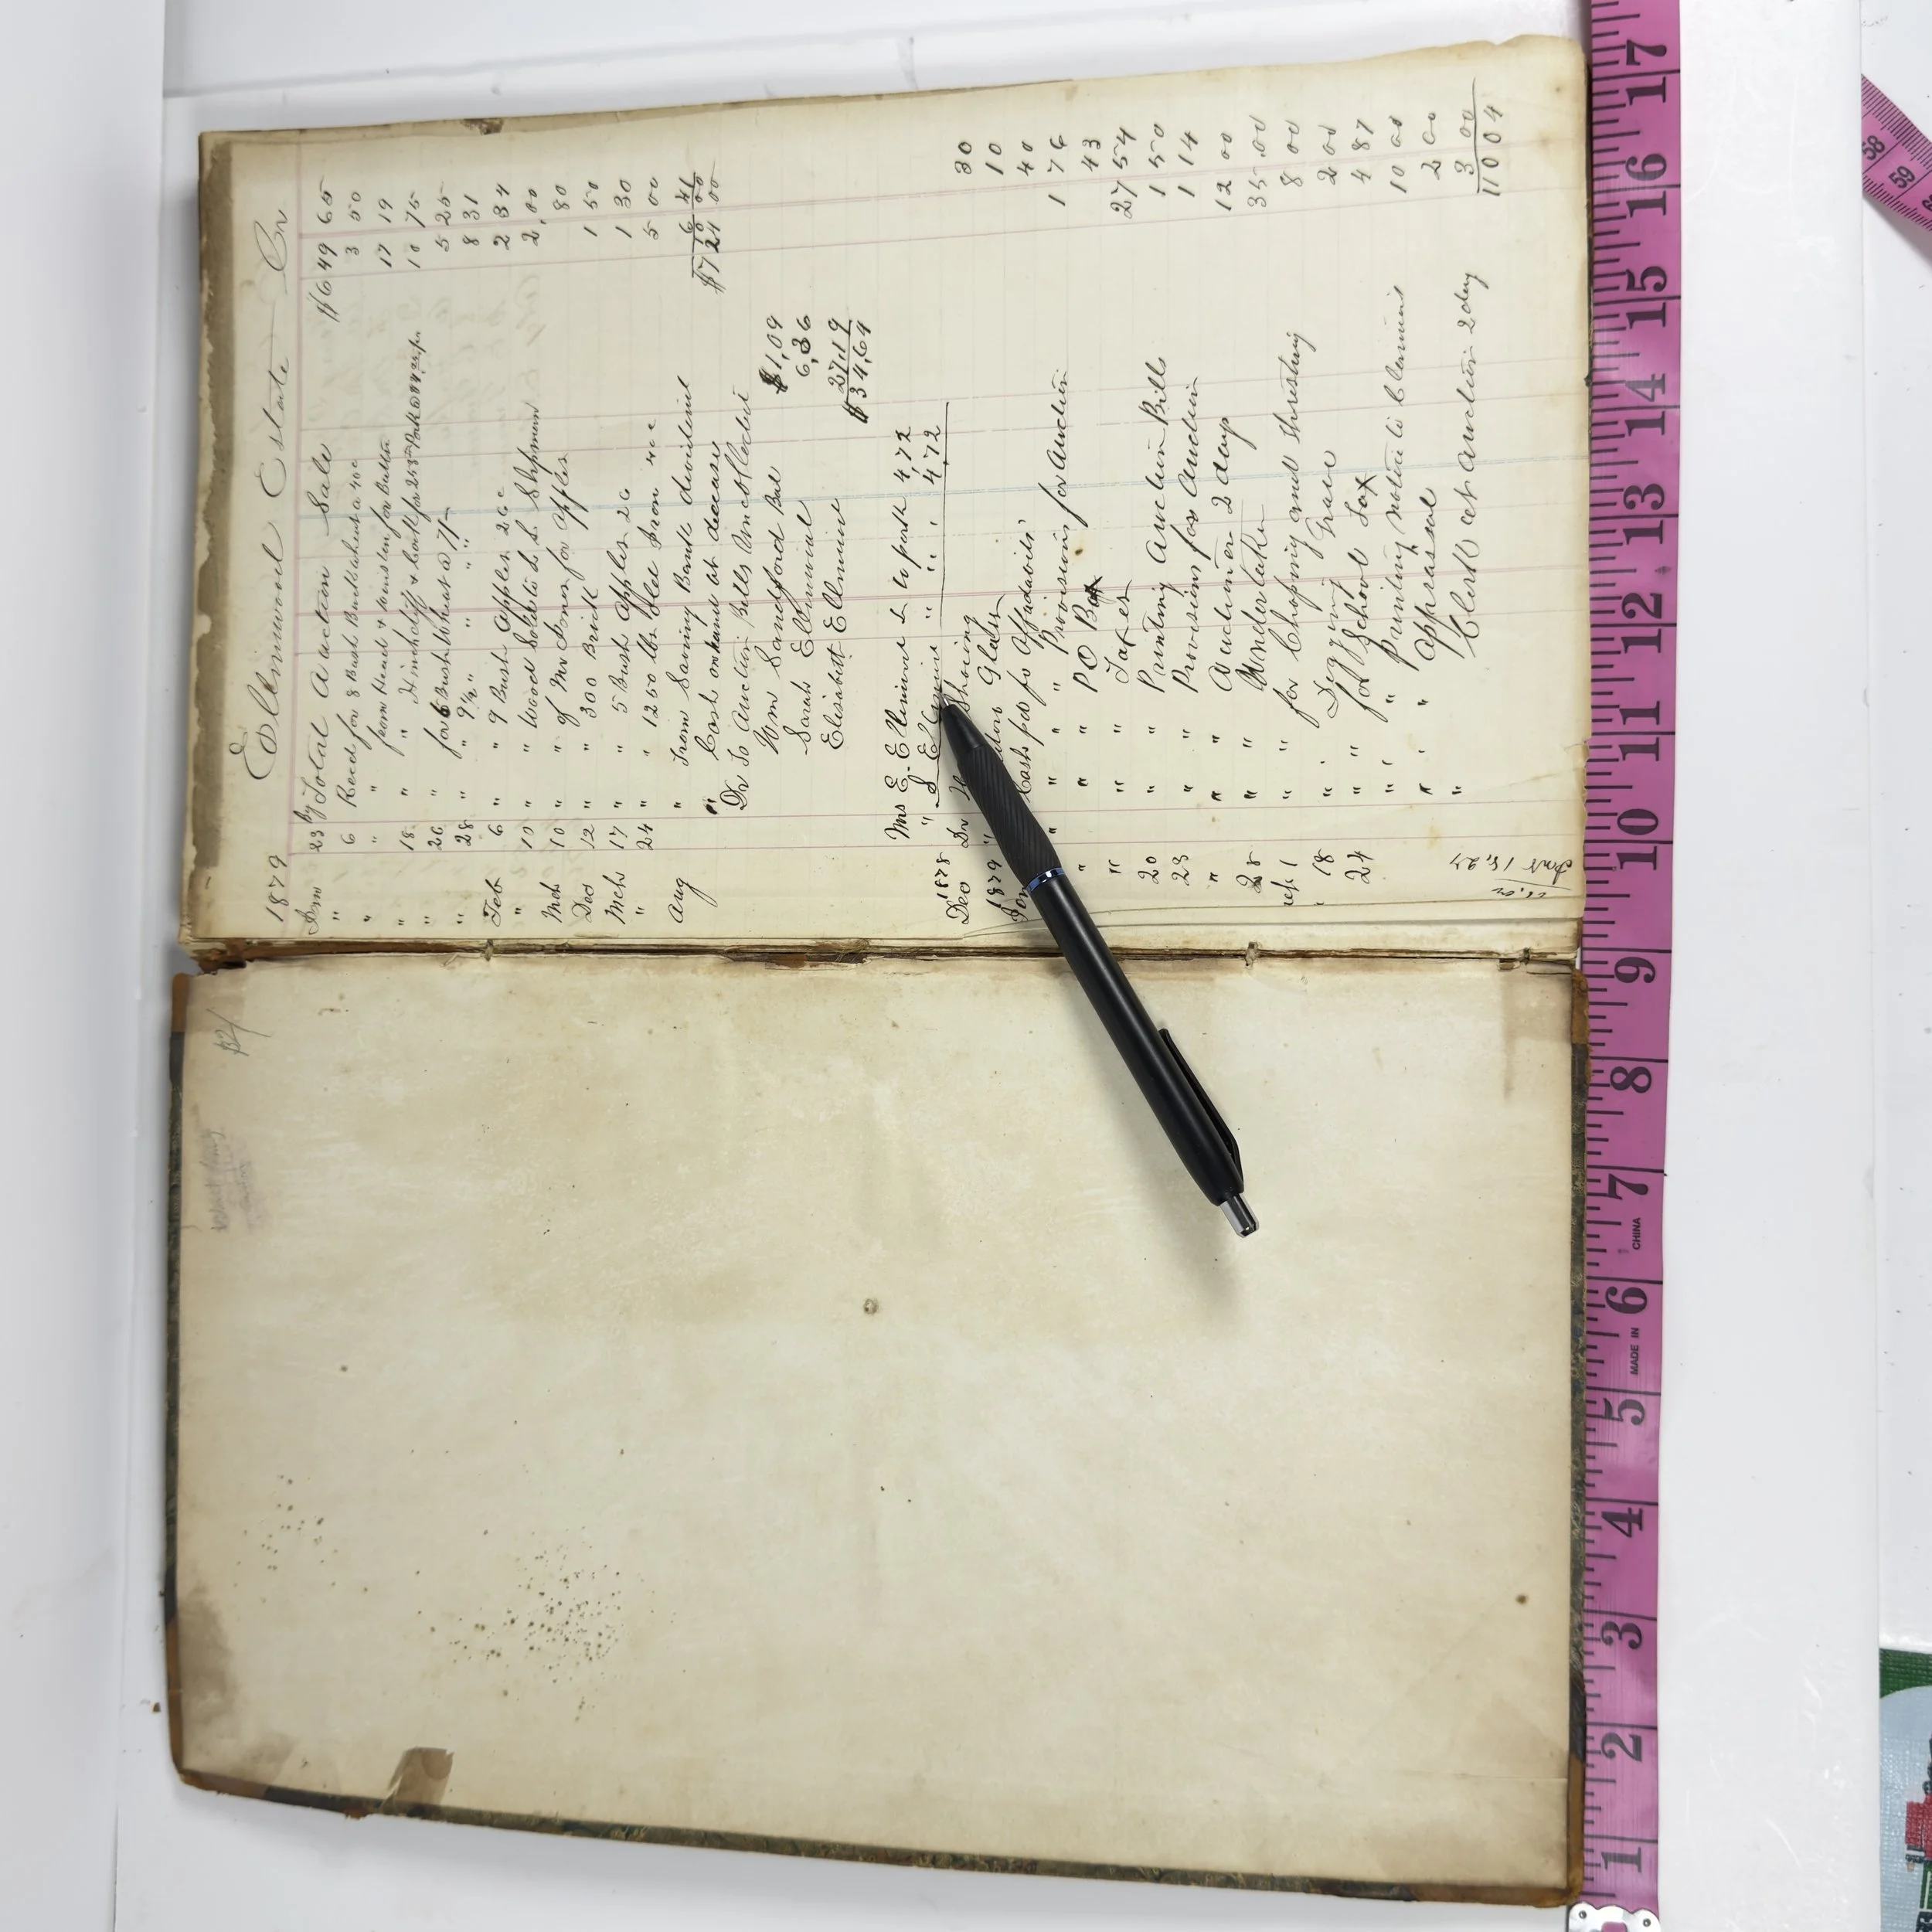 Ellinwood Estate Cr
1879
Jan 23 by Total Auction Sale $649 65
" 6 Recd for 8 Bush Buckwheat a 40c 3 50
" " " from Head & for Butter 17 19
" 18 " " Hinchcliff & for 10 75
" 26 " for 6 Bush Wheat @ 5 25
" 28 " " 9 1/2 " " " 8 31
Feb 6 " " 9 Bush Apples 26c 2 34
" 10 " " Wood Sold to 2,00
Mch 10 " of Mr for apples 80
Dec 12 " " 300 Brick 1 50
Mch 17 " " 5 Bush Apples 26 1 30
" 24 " " 1250 lbs Old Iron 40c 5 00
Aug " from Saving Bank dividend 6 41
" Cash on hand at decease 10 00
$724 00
Dr To Auction Bills Uncollected
Wm Sandford Bal $1,09
Sarah Ellinwood 6,36
Elisabeth Ellinwood 27,19
$34,64
Mrs E. Ellinwood Dr to pork 4,72
" S " " " 4,72
1878
Dec Dr Shoeing 30
1879 " Glass 10
Jan Cash pd for Affadavits 40
" " " " Provisions for Auction 1 76
" " " PO Box 43
" " " Taxes 27 54
20 " " Printing Auction Bills 1 50
23 " " Provisions for Auction 1 14
" " " Auctioneer 2 days 12 00
28 " " Undertaker 35.00
Feb 1 " " for Choping and thrashing 8 00
' 18 " Digging Grave 2 00
24 " " for School Tax 4 87
" " Printing notice to Claimants 10 00
" " " appraisal 2 00
" Clerk at Auction 2 day 3 00
110 04
18,24
$2/
17
16
15
14
13
12
11
10
9
8
7
CHINA
6
MADE IN
5
4
3
2
1
58
59